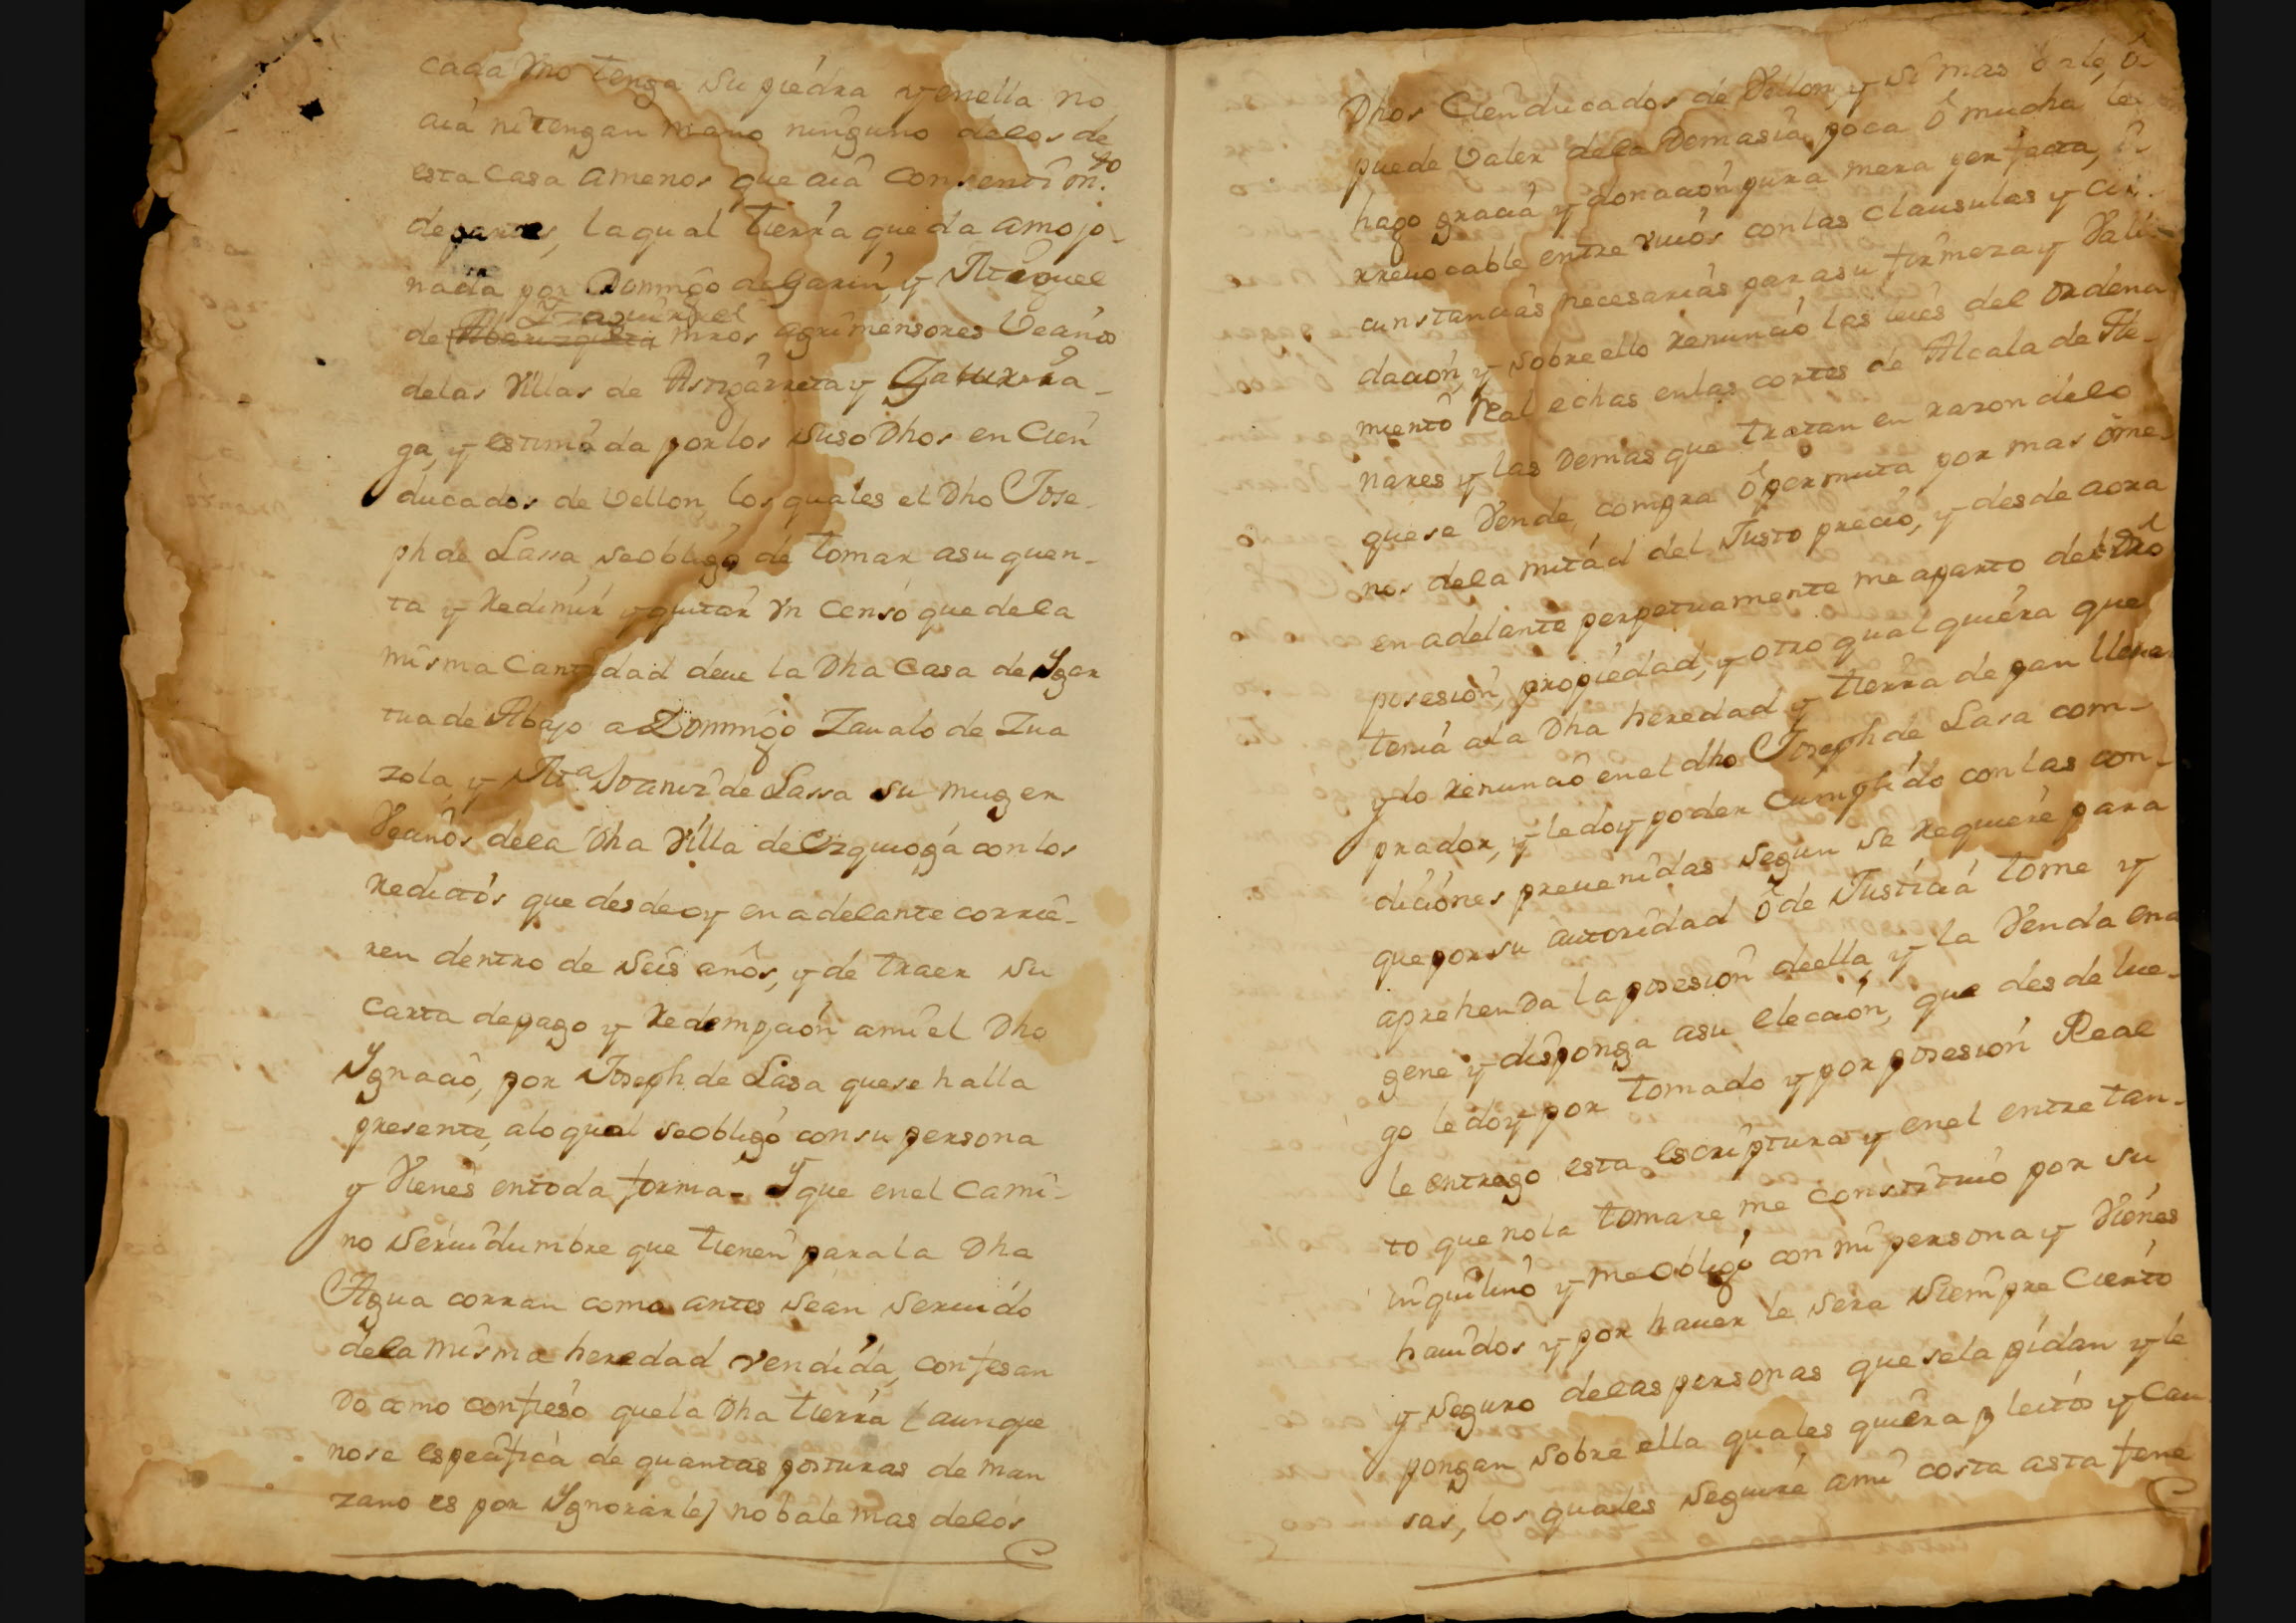 cada Vno tenga su piedra y en ella no
aiá ni tengan mano ninguno delos de
esta Casa amenos que aiâ Consentim.to
departes, laqual tierra queda amojo-
nada por Domingo de Garin, y Miguel
Izaguirre
de mros agrimensores Veános
delas Villas de Astigarreta y Zaldiera-
ga, y estimáda porlos suso Dhos en Cien
ducados de Vellon, los quales el Dho Jose-
ph de Lassa, seobligó de tomar asu quen-
ta y Redimir y quitar Vn Censo que dela
misma Cantidad deue la Dha Casa de Ygar
tua de Abajo a Domingo Zaualo de Zua
zola, y M.a de Lassa su muger
Veanôs dela Dha Villa de Ezquiogá con los
Reditos que desdeoy en adelante corrie-
ren dentro de Seis anôs, y de traer su
Carta depago y Redempcion amî el Dho
Ygnacio, por Joseph de Lasa quese halla
presente, aloqual seobligó consu persona
y Vienes entoda forma- Y que enel Cami-
no Seruidumbre que tienen parala Dha
Agua corran como antes sean Seruido
dela misma heredad vendida, confesan
Do como confieso quela Dha tierra (aunque
nose especifica de quantas posturas de man
zano es por Ygnorarle) no bale mas delos
Dhos Cien ducados de Vellon, y Si mas bale, ô
puede Valer dela Demasia poca ô mucha le
hago gracia y donacion pura mera perfecta, î
rreuocable entre viuôs con las Clausulas y Cir-
cunstancias necesarias parasu firmeza y Vali-
dacion, y sobreello Renuncio las leies del Ordena
miento Real echas enlas cortes de Alcala de He-
nares y las Demas que tratan en razon délo
quese Vende, compra ô permuta por mas ôme-
nos dela mitad del Justo precio, y desde aora
en adelante perpetuamente me aparto del Dro
posesion, propiedad, y otro qual quiera que
tenia ala Dha heredad y tierra de pan lleuar
y lo Renunciô enel dho Joseph de Lasa com-
prador, y ledoy poder Cumplido con las con-
diciones preuenidas segun se Requiere para
que porsu autoridad ô de Justicia tome y
aprehenda laposesion deella, y la Venda ena
gene y disponga asu eleccion, que desde lue-
go le doy por tomado y por posesion Real
le entrego esta escriptura y enel entretan-
to que nola tomare me constituio por su
inquilino y me obligó con mi persona y Vienes
hauidos y por hauer le sera Siempre Cierto
y Seguro delaspersonas quesela pidan y le
pongan sobreella quales quiera pleitos y Cau
sas, los quales Seguire ami costa asta fene